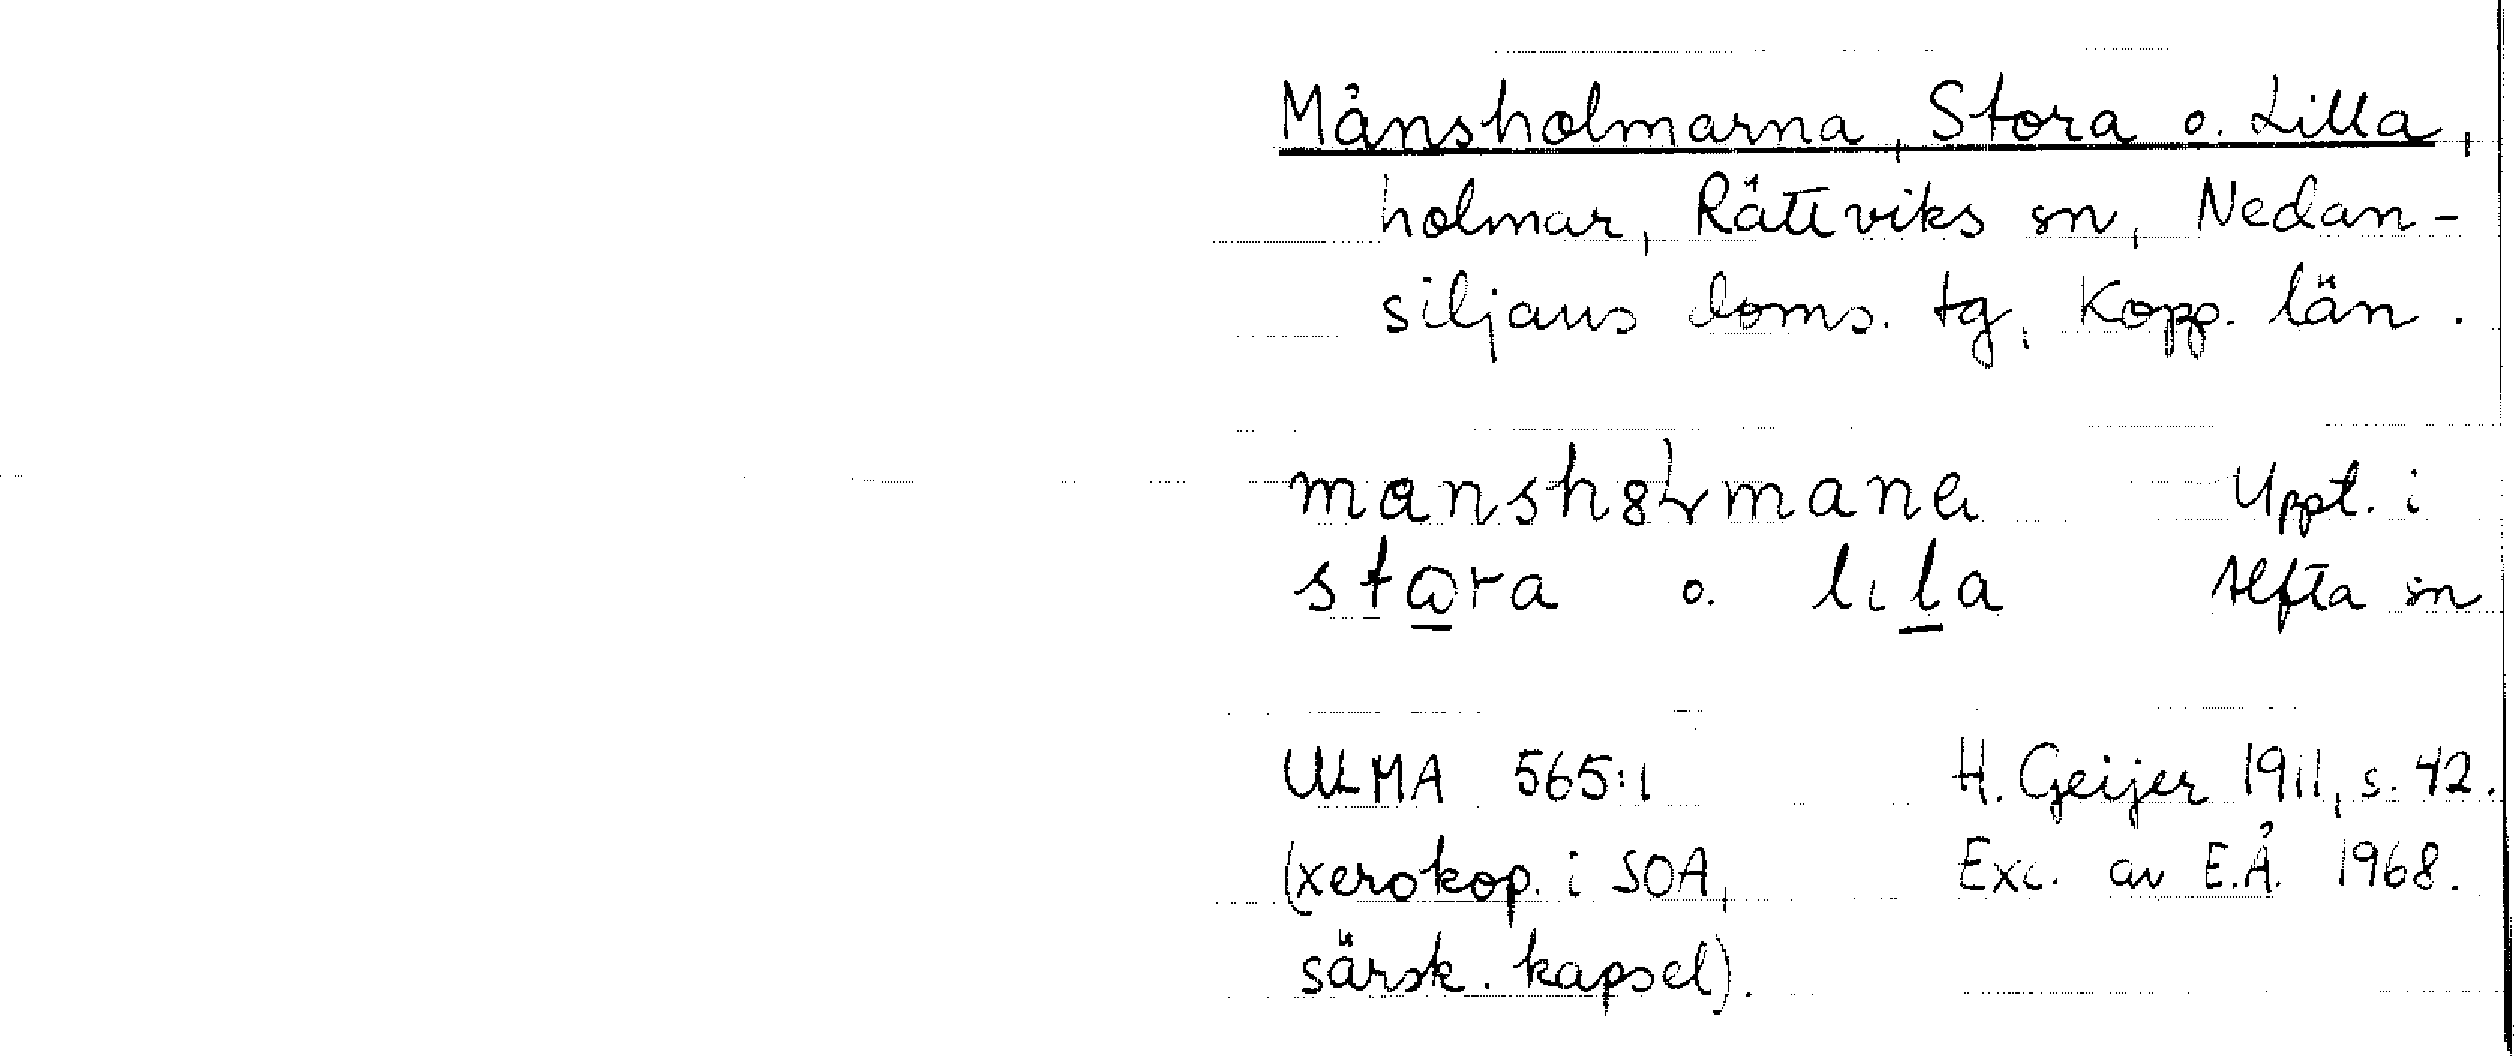 Månsholmarna, Stora o. Lilla,
holmar, Rättviks sn, Nedan-
siljans doms. tg, Kopp. län.
Uppt. i
stɷra o. lıla Alfta sn
ULMA 565:1 H. Geijer 1911, s. 42.
(xerokop. i SOA, Exc. av E.Å. 1968.
särsk. kapsel).